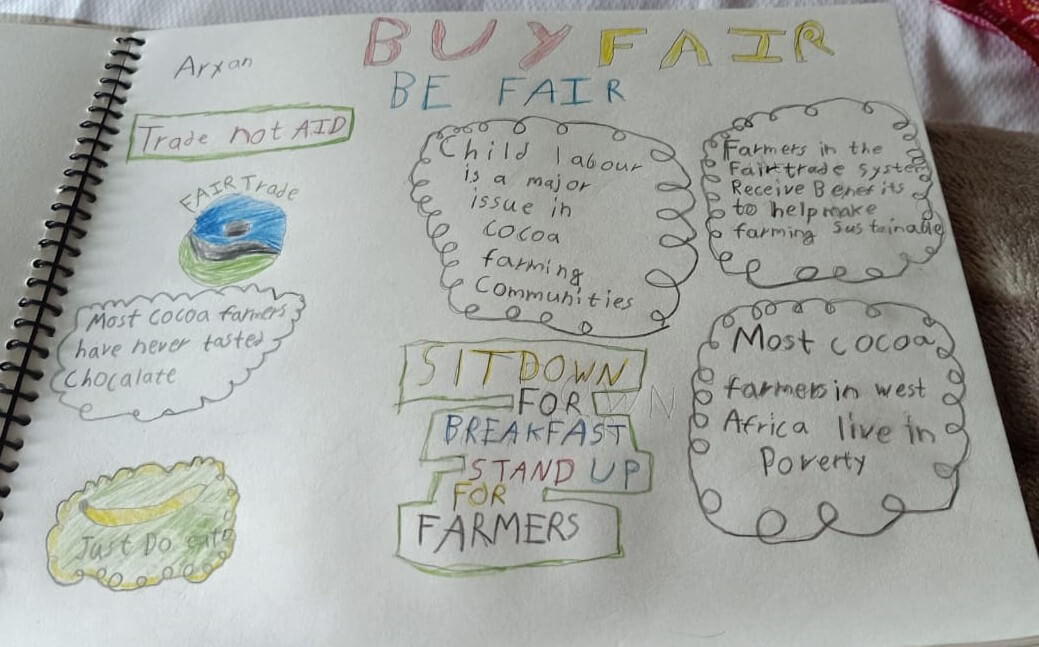 BUY FAIR
BE FAIR
Arxan
Trade not AID
FAIR Trade
Most Cocoa farmers
have never tasted
Chocalate
Just Do eat
Child labour
is a major
issue in
cocoa
farming
Communities
SIT DOWN
FOR
BREAKFAST
STAND UP
FOR
FARMERS
Farmers in the
Fairtrade System
Receive Benefits
to help make
farming Sustainable
Most cocoa
farmers in west
Africa live in
Poverty